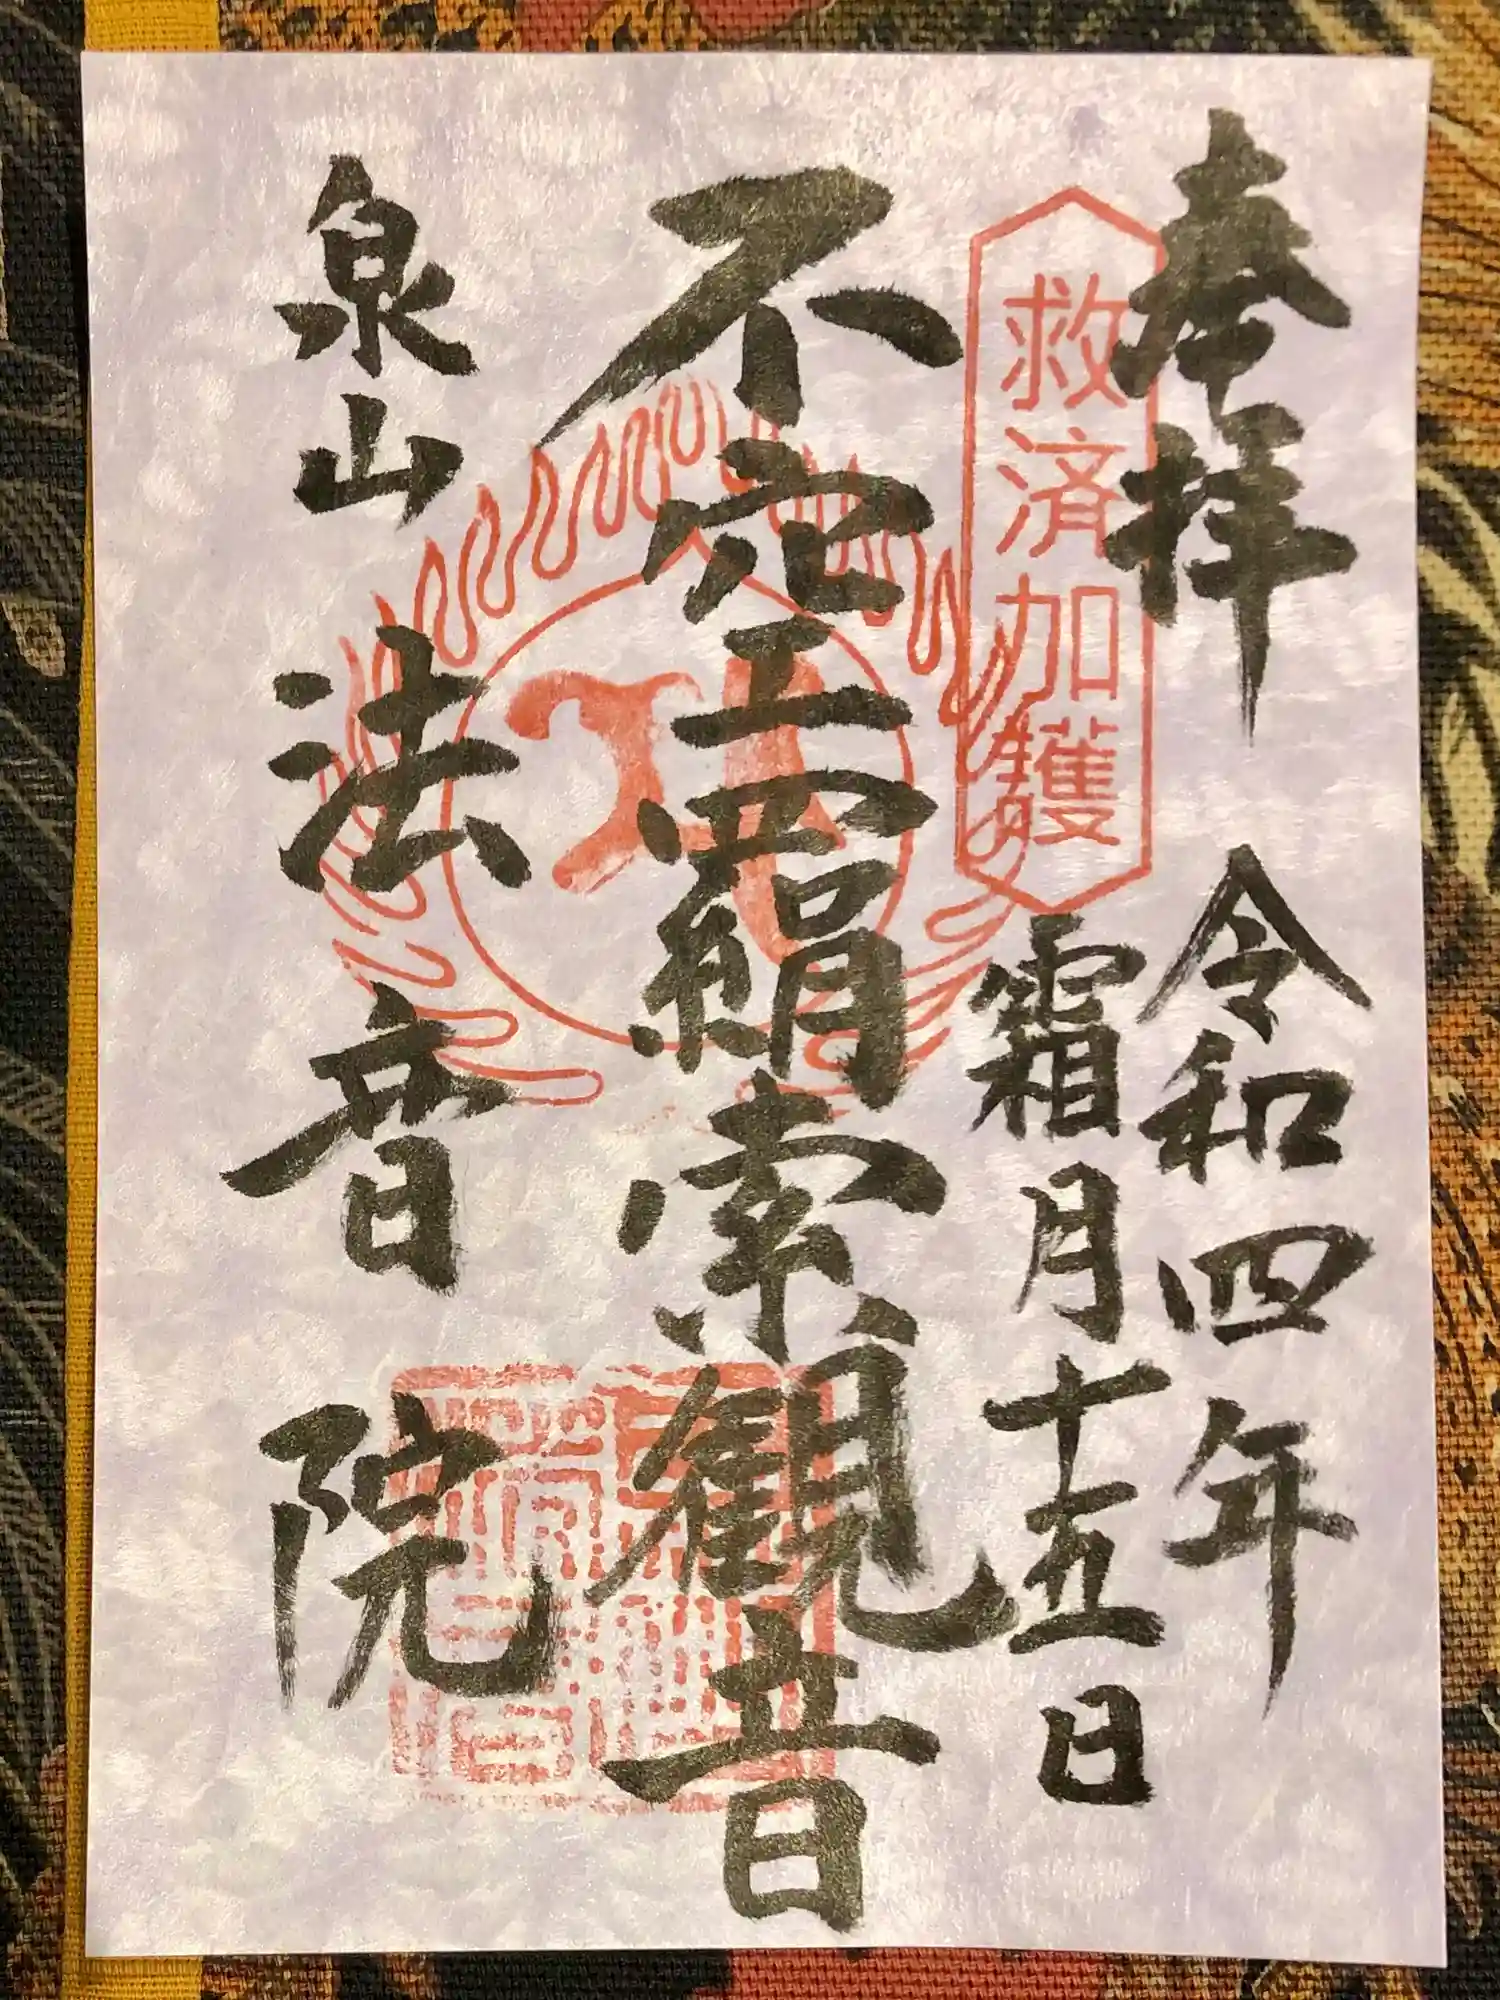 奉拝
令和四年
霜月十五日
救済加護
不空羂索観音
泉山
法音院